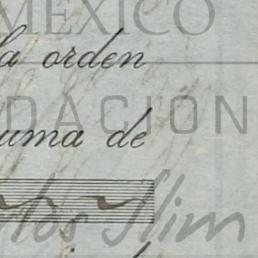 MÉXICO
la orden
DACION
uma de
los Slim